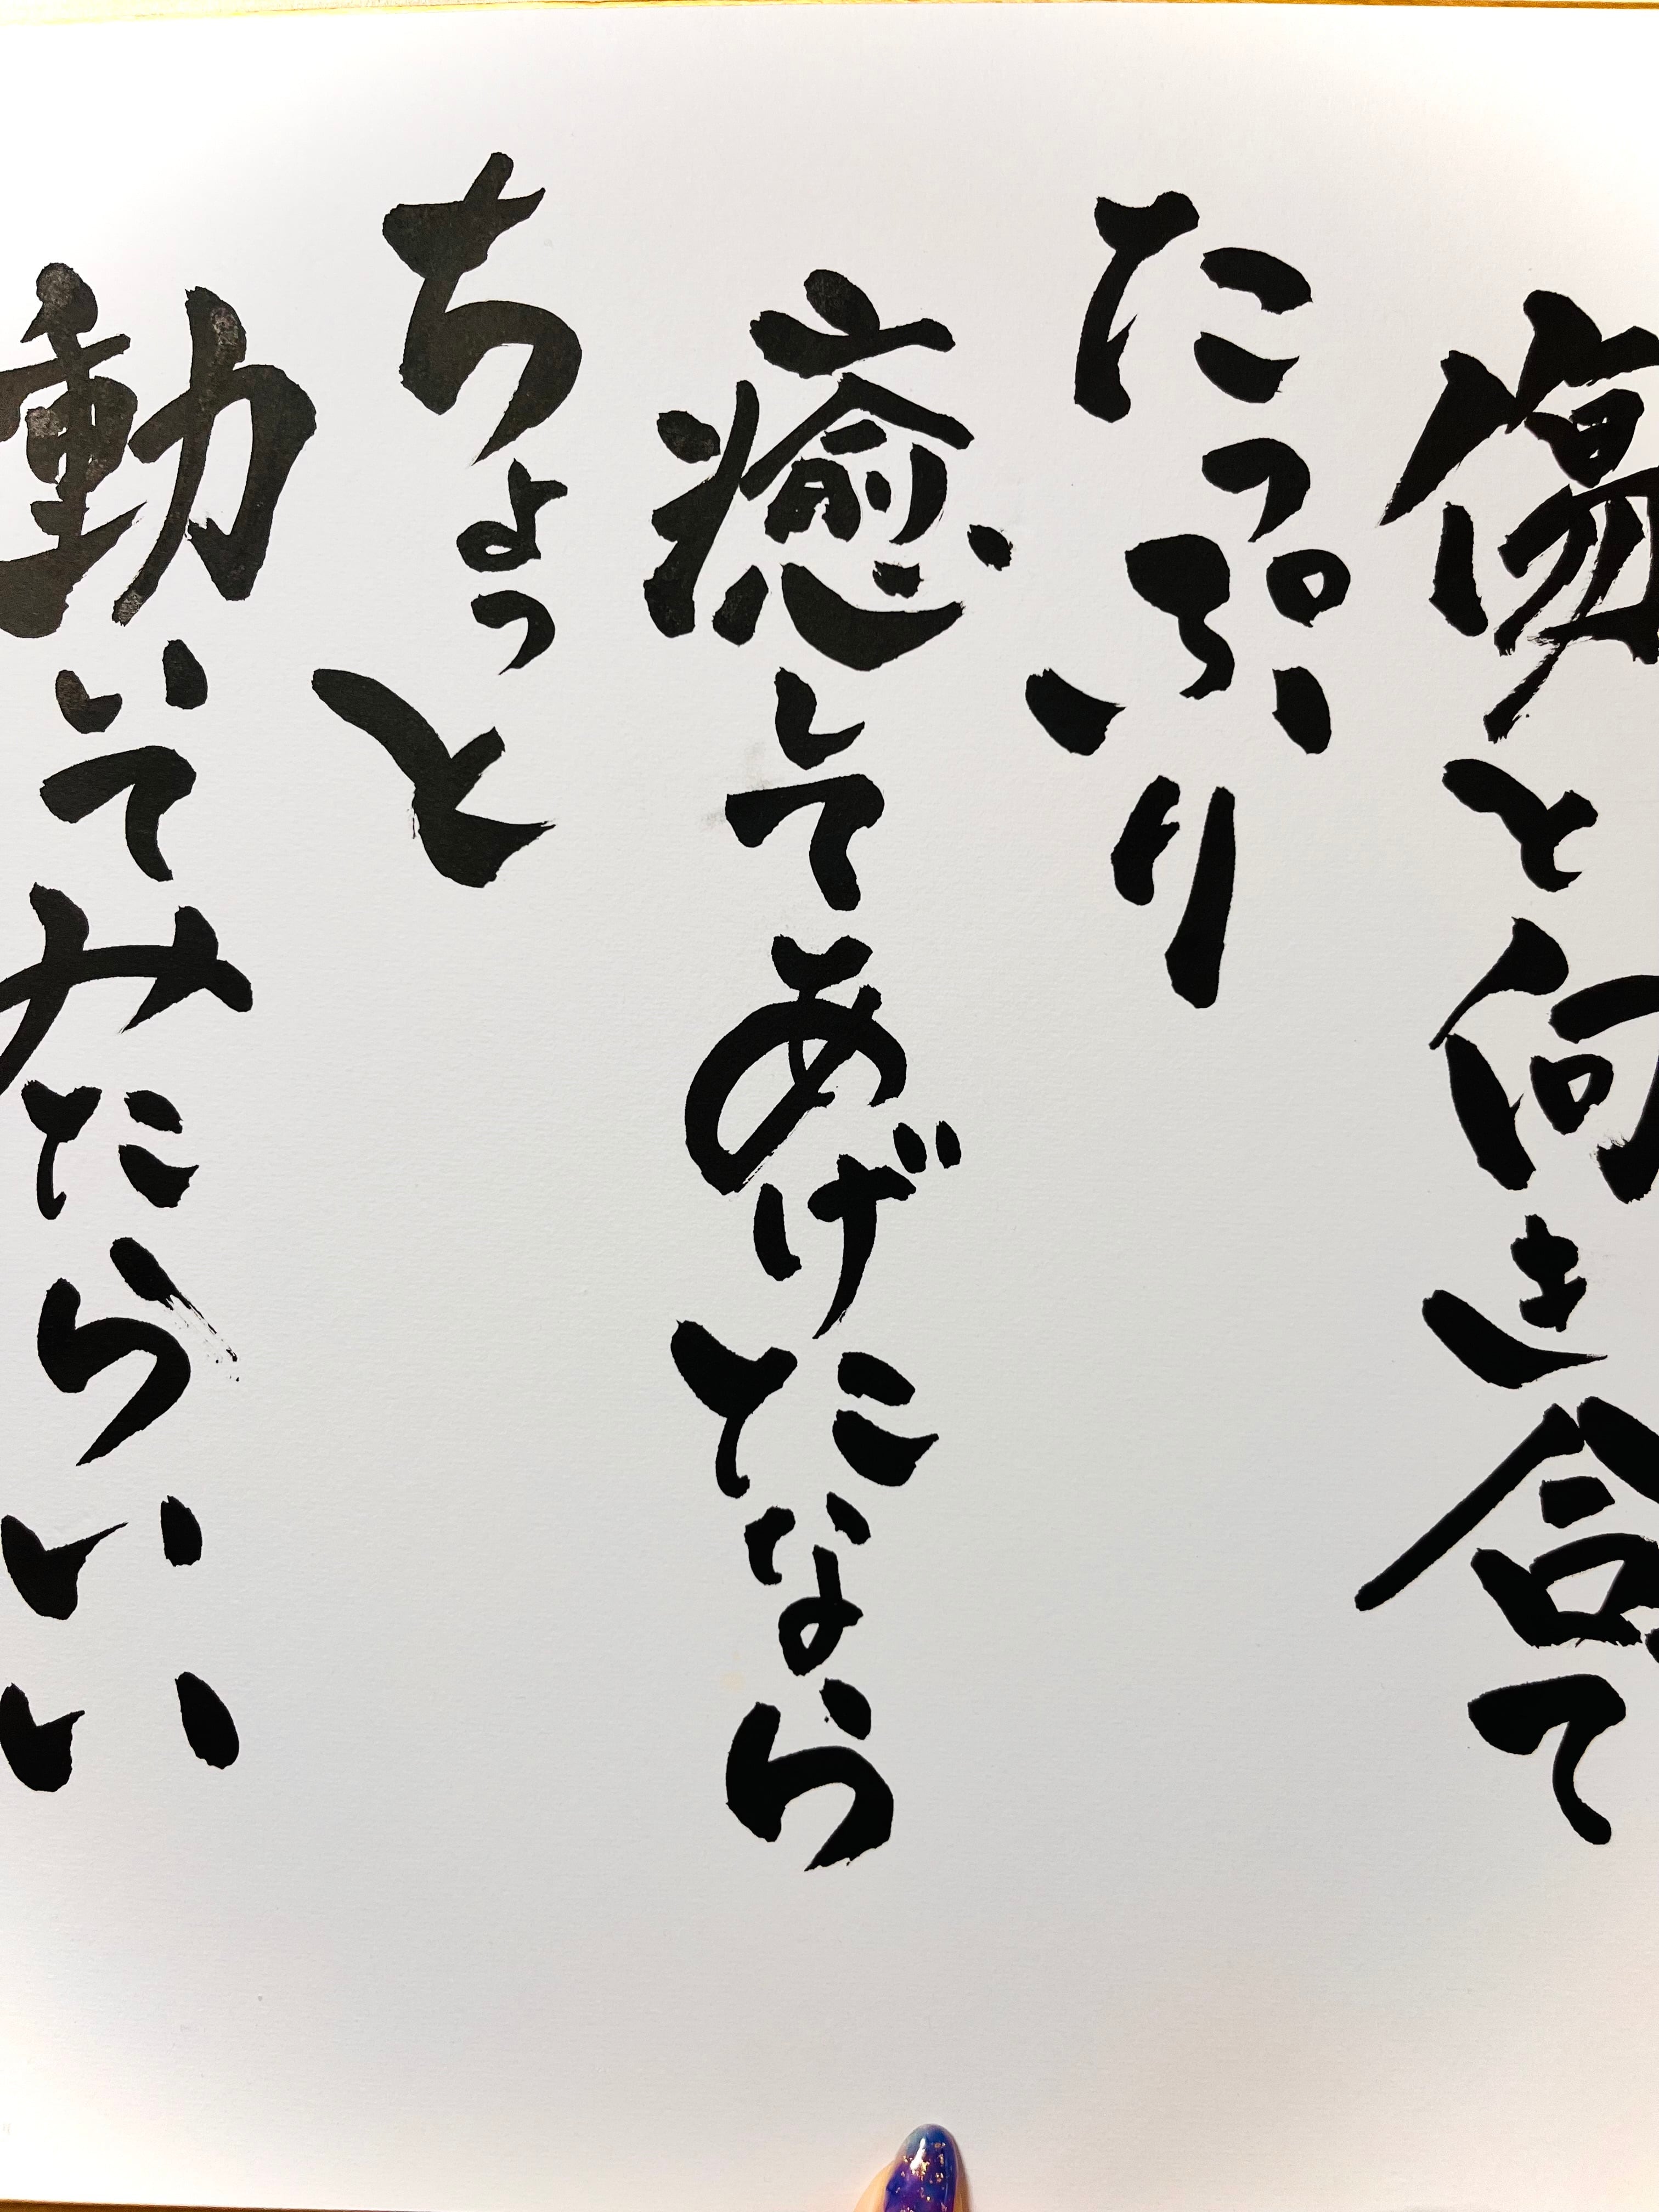 傷と向き合て
たっぷり
癒してあげたなら
ちょっと
動いてみたらいい